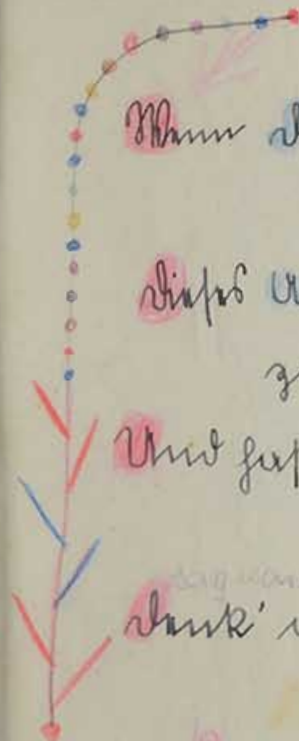 Wenn
Dieses
z
Und has
Denk'